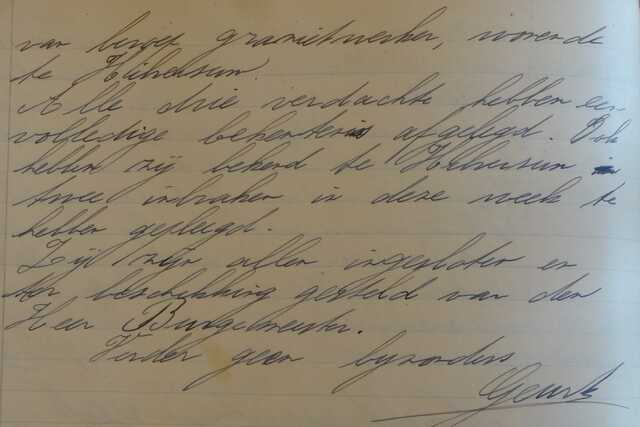 van beroep granietwerker, wonende
te Hilversum.
Alle drie verdachte hebben een
volledige bekentenis afgelegd. Ook
hebben zij bekend te Hilversum
twee inbraken in deze week te
hebben gepleegd.
Zij zijn allen ingesloten en
ter beschikking gesteld van den
Heer Burgemeester.
Verder geen byzonders
Geurts